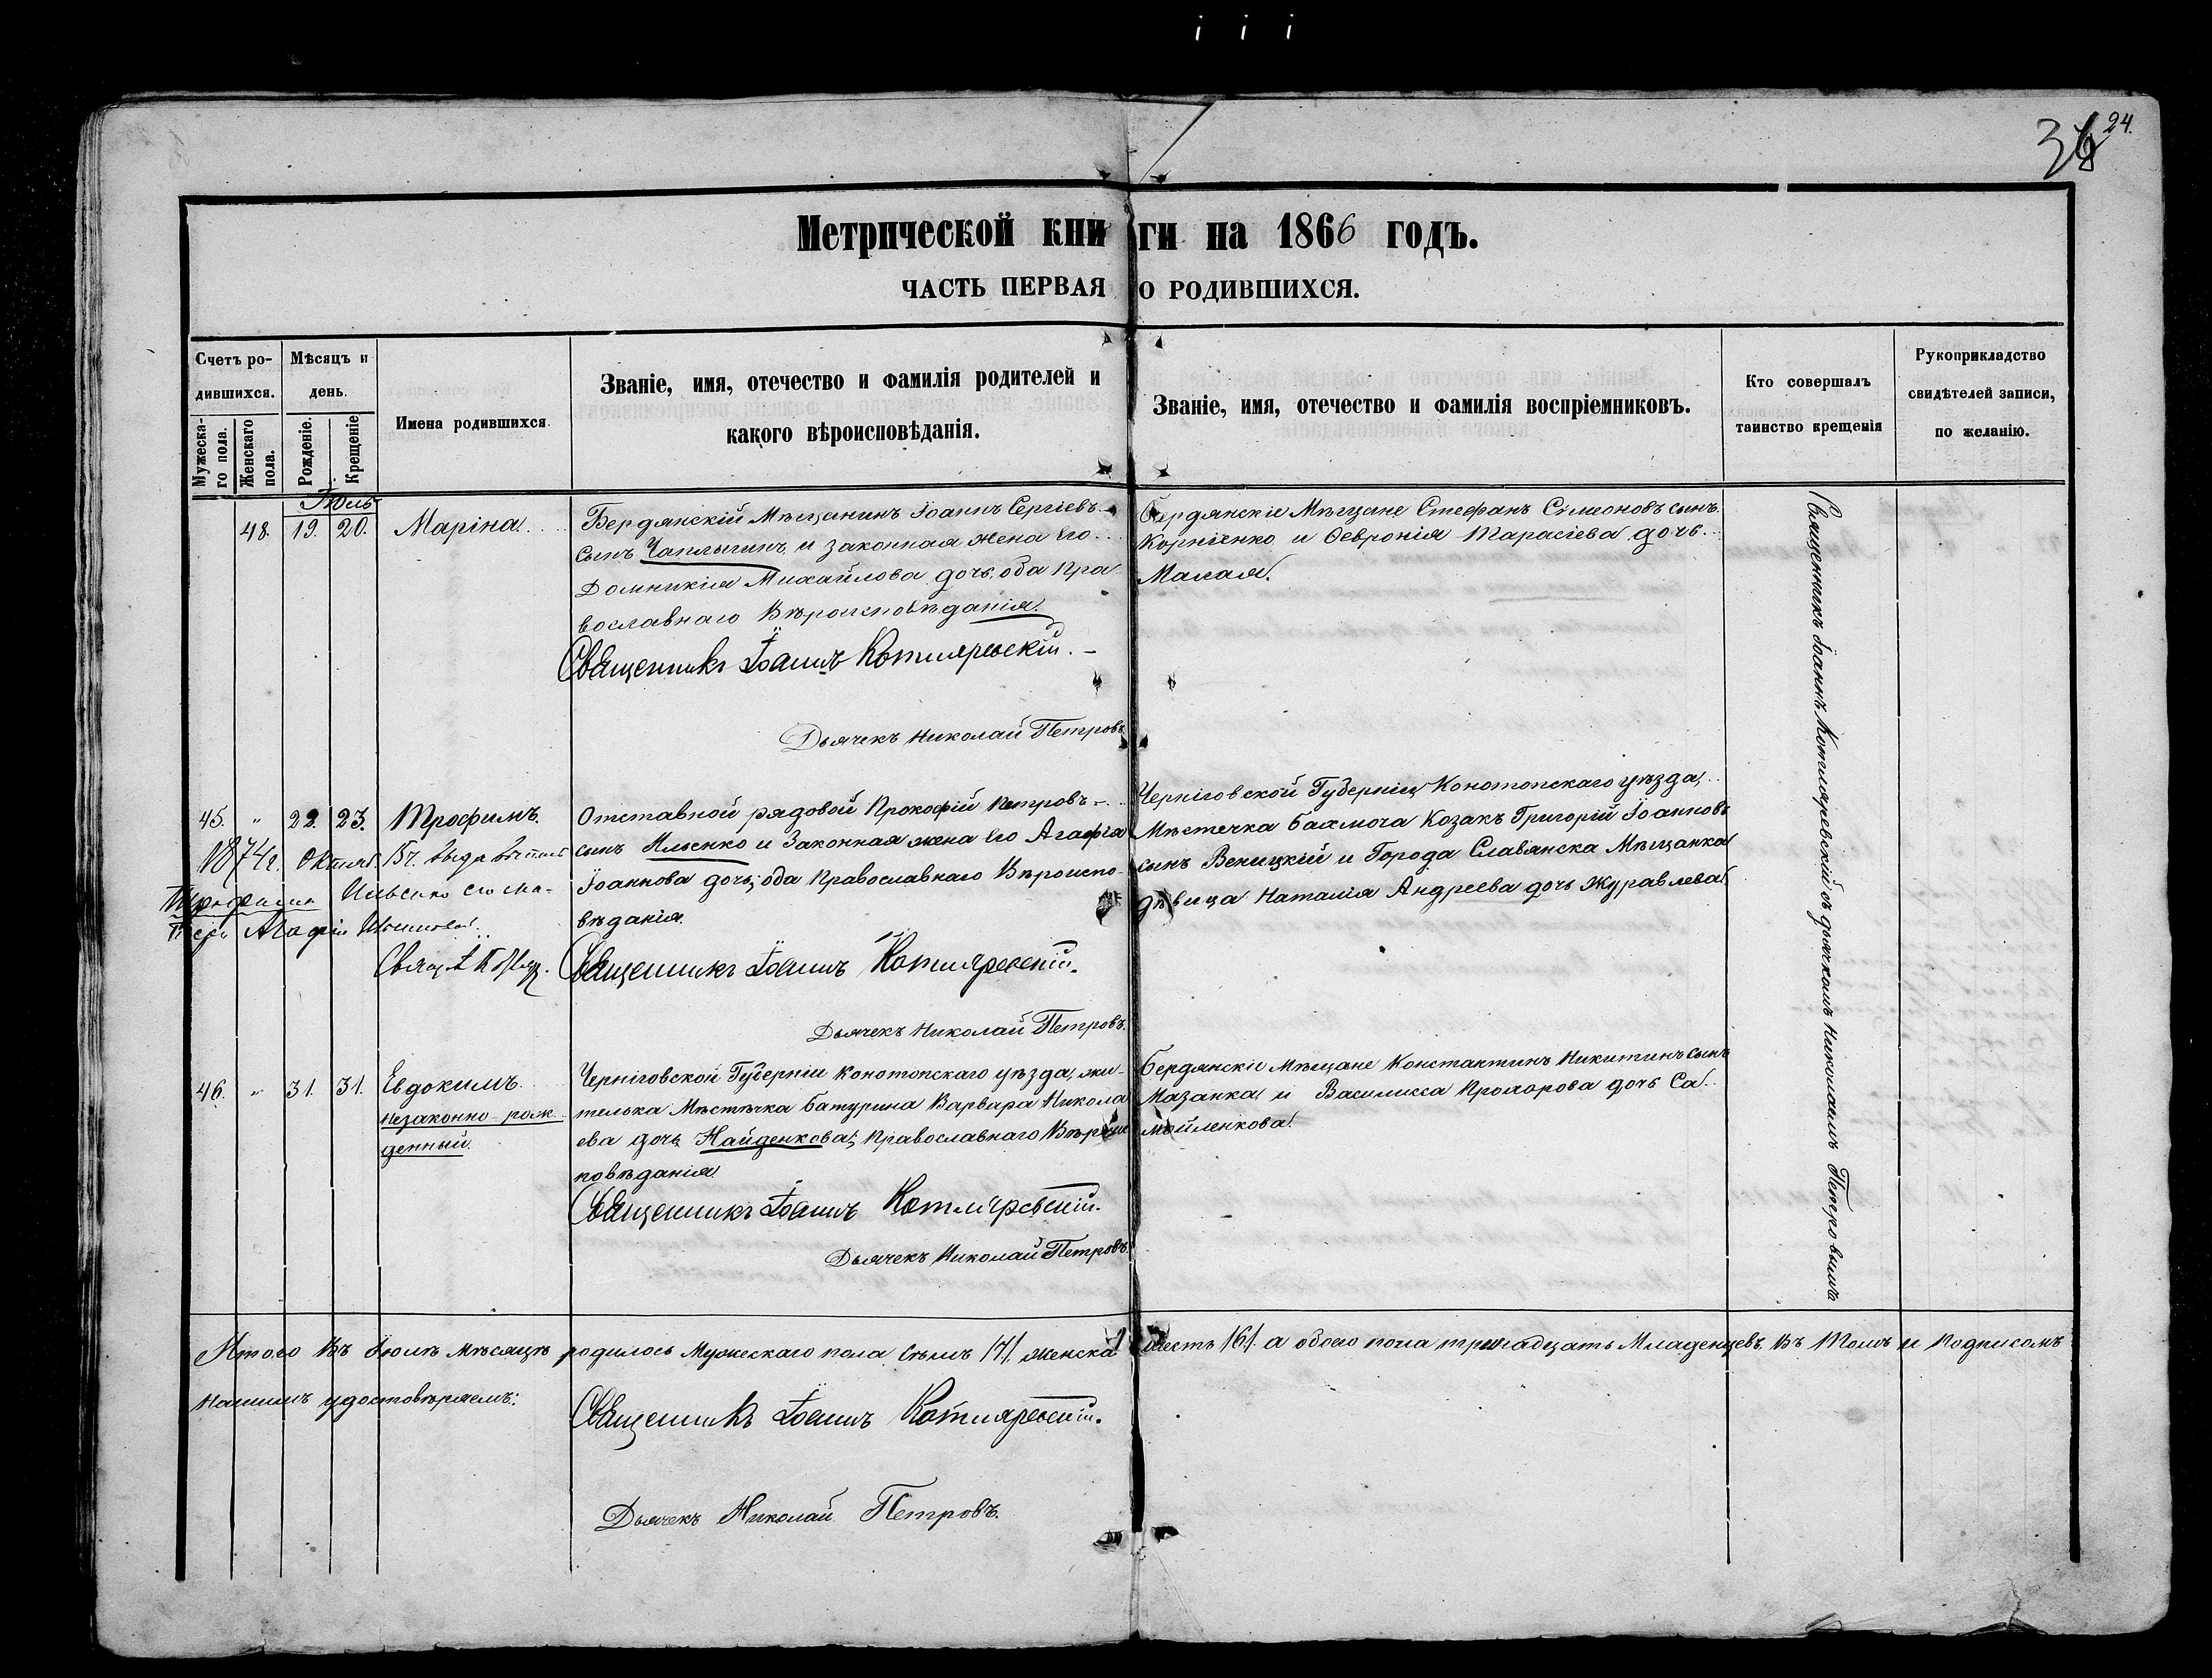 24.
36
Метрической книги на 1866 годъ.
ЧАСТЬ ПЕРВАЯ О РОДИВШИХСЯ.
Счетъ ро-
дившихся.
Мужеска-
го пола.
Женскаго
пола.
Мѣсяцъ и
день.
Рожденіе.
Крещеніе
Имена родившихся.
Званіе, имя, отечество и фамилія родителей и
какого вѣроисповѣданія.
Званіе, имя, отечество и фамилія воспріемниковъ.
Кто совершалъ
таинство крещенія
Рукоприкладство
свидѣтелей записи,
по желанію.
Іюль
48. 19. 20. Маріна.
Бердянскій Мѣщанинъ Іоаннъ Сергіевъ
сынъ Чаплыгинъ и законная жена его
Домникія Михайлова дочь, оба Пра
вославнаго Вѣроисповѣданія.
Священникъ Іоаннъ Котляревскій.
Дьячекъ Николай Петровъ
Бердянскіе Мѣщане Стефанъ Симеоновъ сынъ
Корніенко и Ѳевронія Тарасіева дочь
Малая.
45. " 22. 23. Трофимъ.
Отставной рядовой Прокофій Петровъ
сынъ Ильенко и Законная жена его Агафія
Іоаннова дочь; оба Православнаго Вѣроиспо-
вѣданія.
Священникъ Іоаннъ Котляревскій.
Дьячекъ Николай Петровъ.
Черніговской Губерніи Конотопскаго уѣзда,
Мѣстечка Бахмоча Козакъ Григорій Іоанновъ
сынъ Веницкій и Города Славянска Мѣщанка
дѣвица Наталія Андреева дочь Журавлева.
1874 г. Октяб. 15 ч. выда
Трофима Ильенко его ма-
тери Агафіи
Свящ.
46. " 31. 31. Евдокимъ
незаконно-рож
денный.
Черніговской Губерніи Конотопскаго уѣзда, жи-
телька Мѣстѣчка Батурина Варвара Никола
ева дочь Найденкова; Православнаго Вѣроис
повѣданія
Священникъ Іоаннъ Котляревскій.
Дьячекъ Николай Петровъ.
Бердянскіе Мѣщане Константинъ Никитинъ сынъ
Мазанка и Василисса Прохорова дочь Са
мойленкова.
Священникъ Іоаннъ Котляревскій съ дьячкомъ Николаемъ Петровымъ
Итого въ Іюлѣ мѣсяцѣ родилось Мужескаго пола Семь /7/, женска шесть /6/. а обоего пола тринадцать Младенцевъ, въ томъ и подписомъ
Нашимъ удостовѣряемъ:
Священникъ Іоаннъ Котляревскій.
Дьячекъ Николай Петровъ.